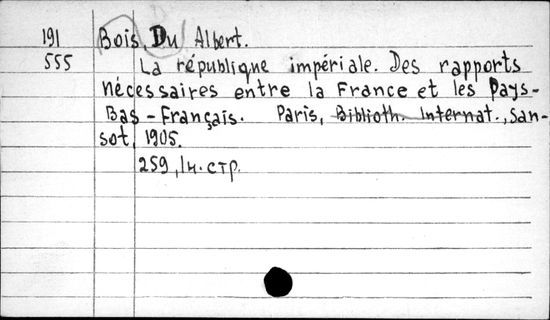 191 Bois, Du Albert.
555 La république impériale. Des rapports
nécessaires entre la France et les Pays-
Bas-Français. Paris, Biblioth. Internat., San-
sot, 1905.
259, 1н. стр.